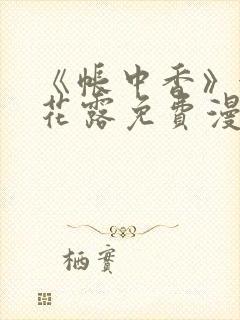 《帐中香》
花露免费漫
栖實